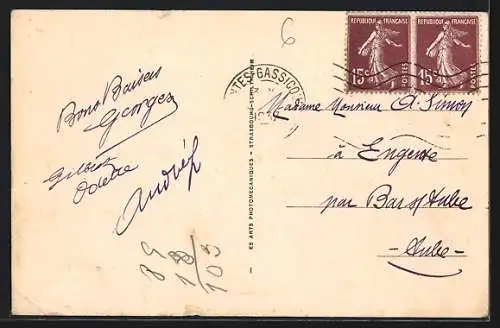 Bons Baisers
Georges
Gilbert
Odette
André
39
103
6
ES ARTS PHOTOMECANIQUES - STRASBOURG-SCHIL
REPUBLIQUE FRANÇAISE
15c
POSTES
REPUBLIQUE FRANÇAISE
15c
POSTES
GASSICO
Madame Monsieur A. Simon
à Engente
par Bar s/ Aube
Aube